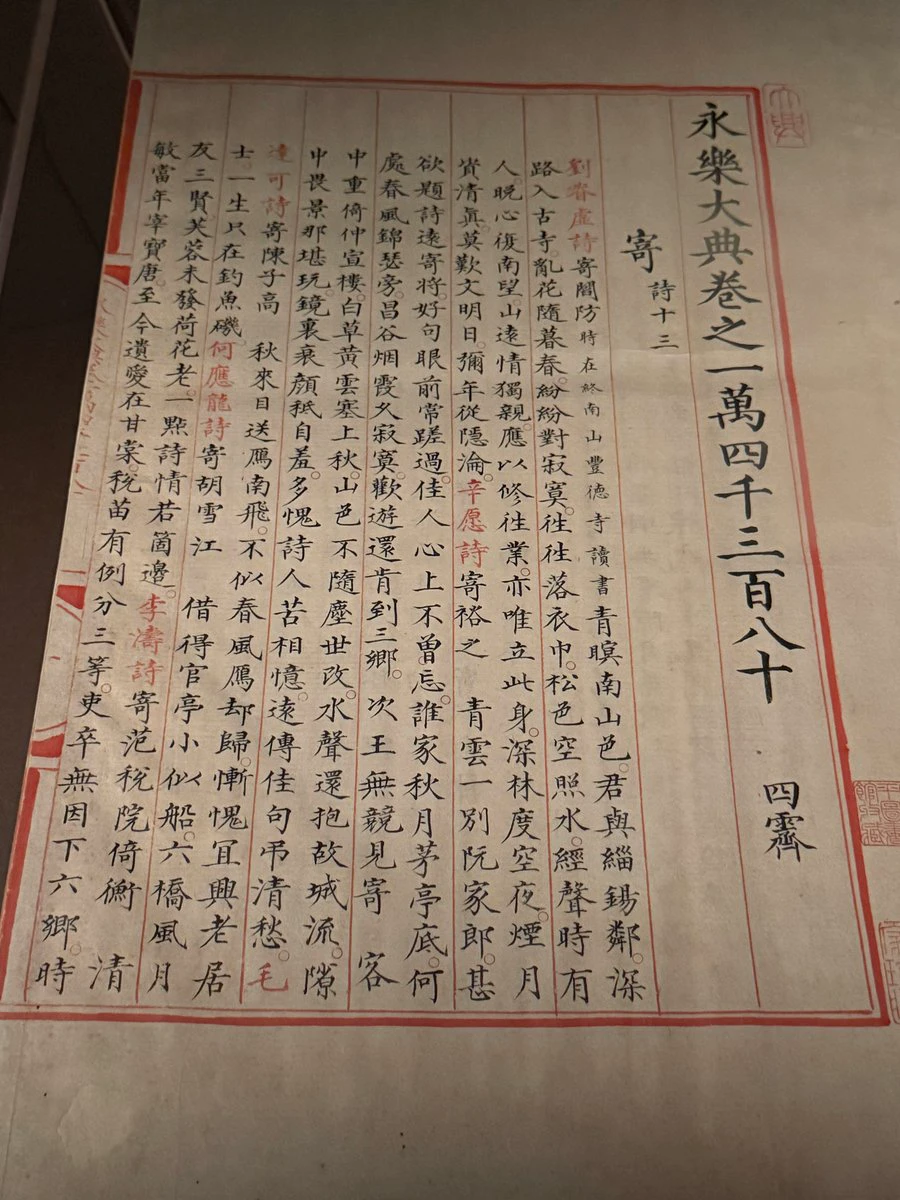 永樂大典卷之一萬四千三百八十 四霽
寄 詩十三
劉昚虛詩寄閻防時在終南山豐德寺讀書青暝南山色。君與緇錫鄰。深
路入古寺。亂花隨暮春。紛紛對寂寞。往往落衣巾。松色空照水。經聲時有
人。晚心復南望。山遠情獨親。應以修往業。亦唯立此身。深林度空夜。煙月
資清眞。莫歎文明日。彌年從隱淪。辛愿詩寄裕之 青雲一別阮家郎。甚
欲題詩遠寄將。好句眼前常蹉過。佳人心上不曾忘。誰家秋月茅亭底。何
處春風錦瑟旁。昌谷烟霞久寂寞。歡遊還肯到三鄉。 次王無競見寄 客
中重倚仲宣樓。白草黃雲塞上秋。山色不隨塵世改。水聲還抱故城流。隙
中畏景那堪玩。鏡裏衰顏秖自羞。多愧詩人苦相憶。遠傳佳句弔清愁。毛
達可詩寄陳子高 秋來目送鴈南飛。不似春風鴈却歸。慚愧冝興老居
士。一生只在釣魚磯。何應龍詩寄胡雪江 借得官亭小似船。六橋風月
友三賢。芙蓉未發荷花老。一點詩情若箇邊。李濤詩寄范稅院倚衡 清
敏當年宰寶唐。至今遺愛在甘棠。稅苗有例分三等。吏卒無因下六鄉。時